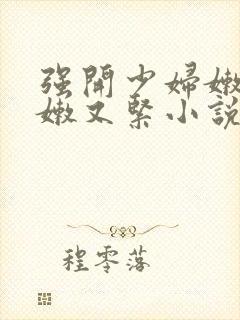 强開少婦嫩
嫩又緊小說
程零落